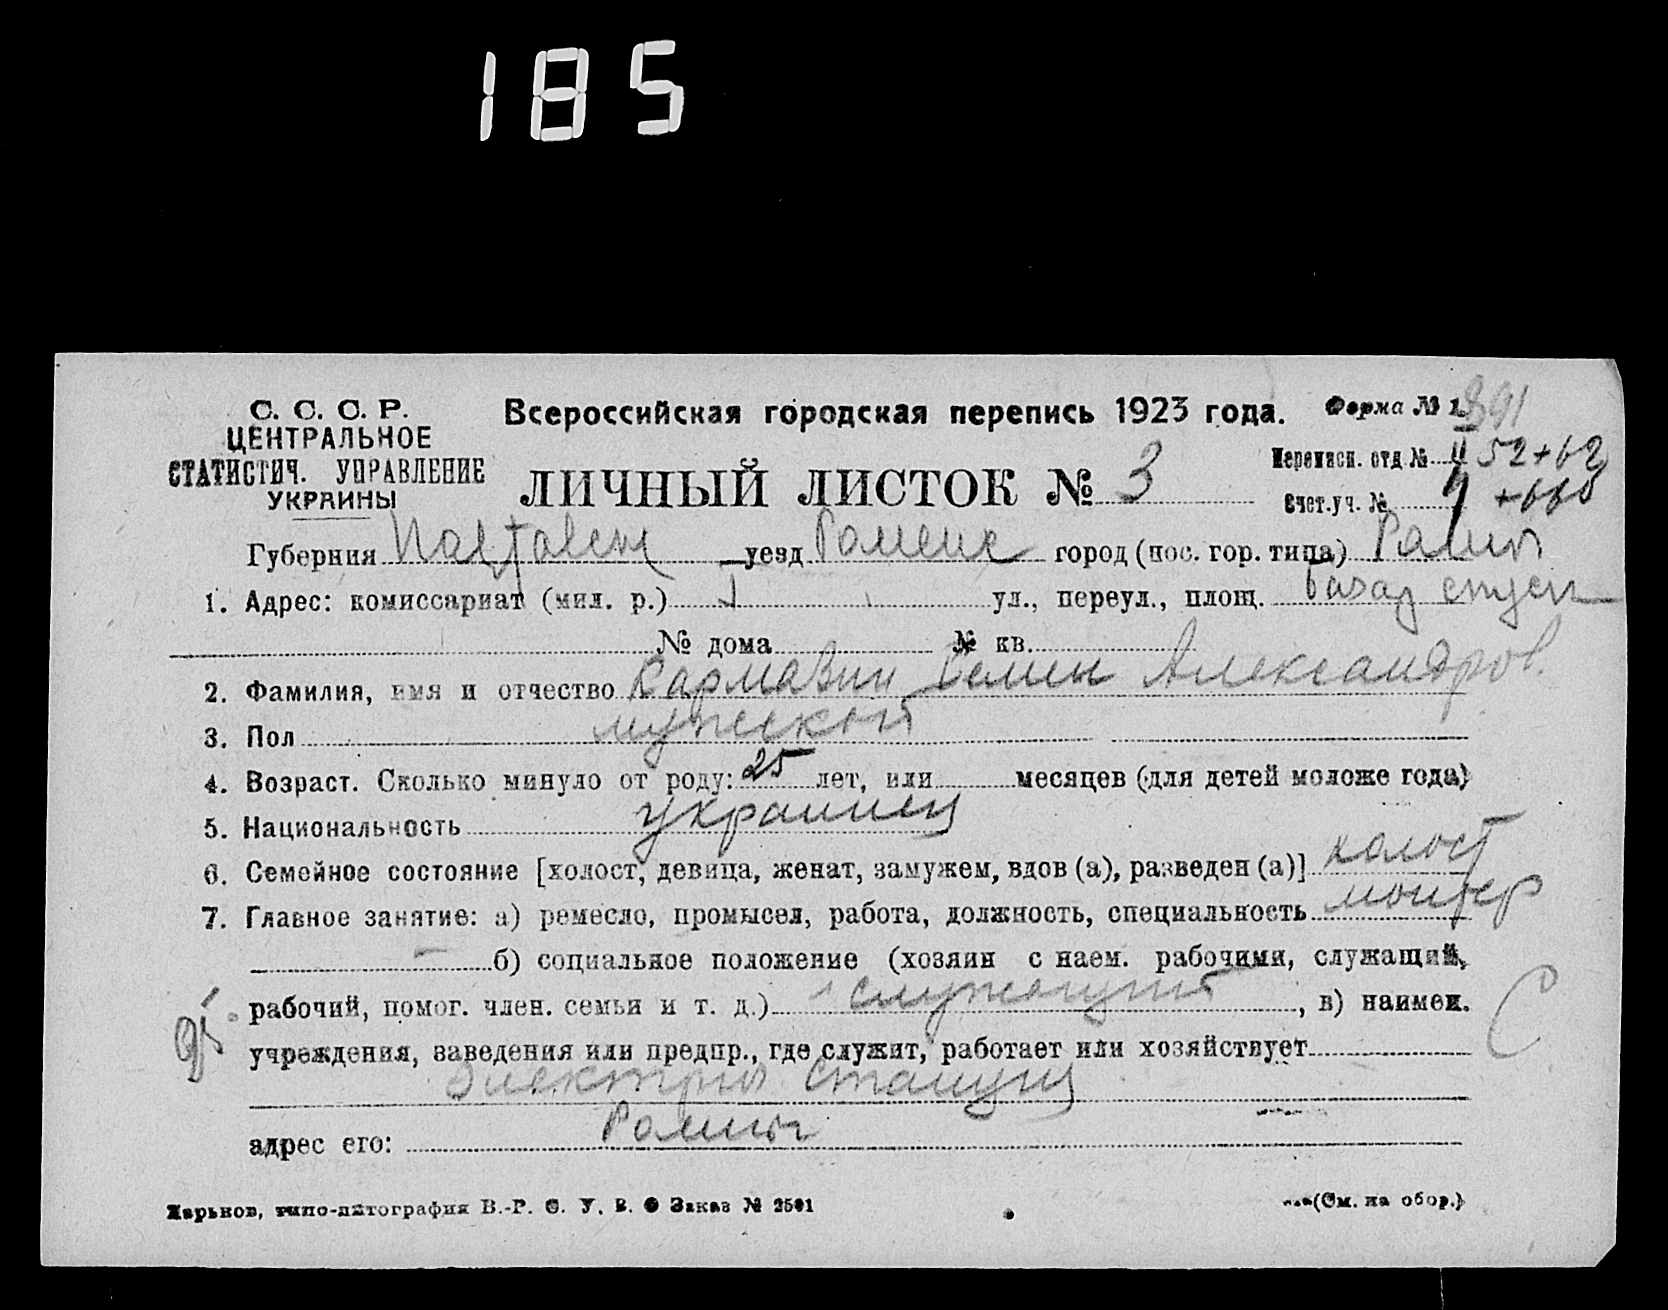 185
С. С. С. Р.
ЦЕНТРАЛЬНОЕ
СТАТИСТИЧ. УПРАВЛЕНИЕ
УКРАИНЫ
Всероссийская городская перепись 1923 года.
Форма № 1. 391
ЛИЧНЫЙ ЛИСТОК № 3
Переписн. отд. № II 52+62
Счет.уч. №
Губерния Полтавск уезд Роменск город (пос. гор. типа) Ромны
1. Адрес: комиссариат (мил. р.) I ул., переул., площ. базар
№ дома № кв.
2. Фамилия, имя и отчество Кармазин Семен Александров.
3. Пол мужской
4. Возраст. Сколько минуло от роду: 25 лет, или месяцев (для детей моложе года)
5. Национальность украинец
6. Семейное состояние [холост, девица, женат, замужем, вдов (а), разведен (а)] холост
7. Главное занятие: а) ремесло, промысел, работа, должность, специальность монтер
б) социальное положение (хозяин с наем. рабочими, служащий,
рабочий, помог. член. семьи и т. д.) служащий, в) наимен.
учреждения, заведения или предпр., где служит, работает или хозяйствует
Электрич станция
адрес его: Ромны
Харьков, типо-литография В.-Р. С. У. В. О Заказ № 2501
(См. на обор.)